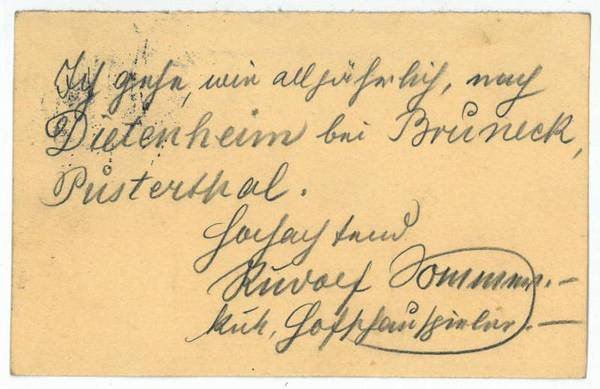 Ich gehe, wie alljährlich, nach
Dietenheim bei Bruneck,
Pusterthal.
Hochachtend
Rudolf Sommer.—
Hofschauspieler.—